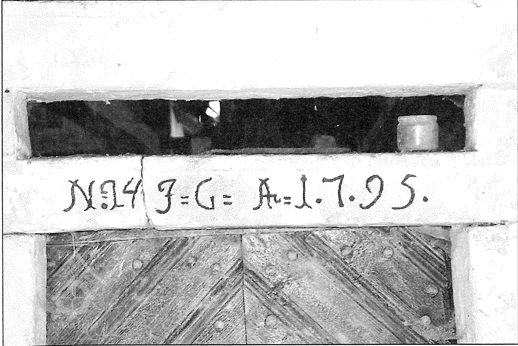 N:14 J=G= Ao=1.7.95.